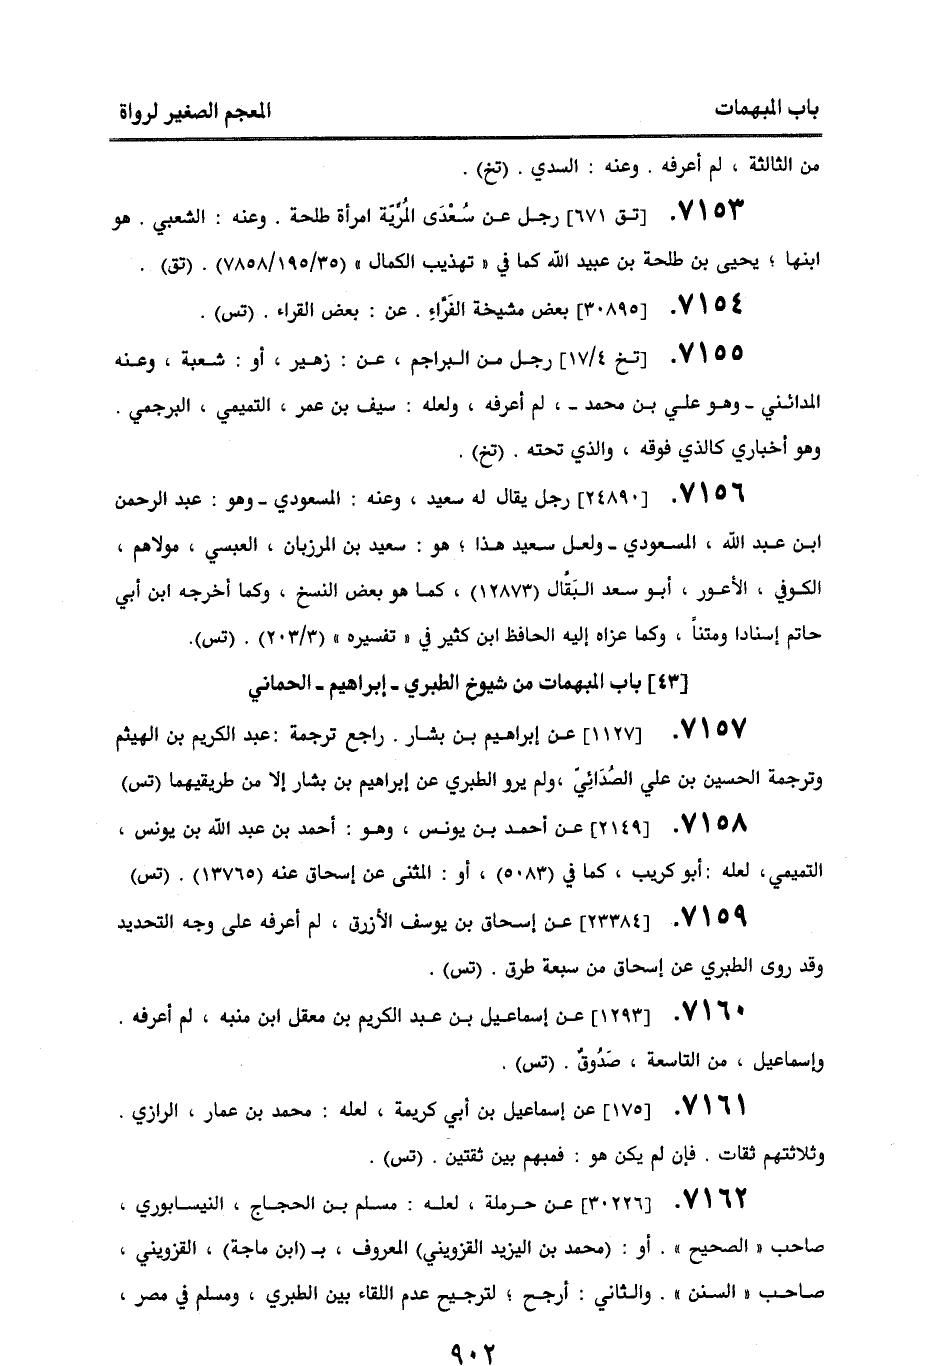 باب المبهمات
المعجم الصغير لرواة
من الثالثة ، لم أعرفه . وعنه : السدي . (تخ) .
٧١٥٣. [تق ٦٧١] رجل عن سُعْدَى المُرِّيَة امرأة طلحة . وعنه : الشعبي . هو
ابنها ؛ يحيى بن طلحة بن عبيد الله كما في « تهذيب الكمال » (٧٨٥٨/١٩٥/٣٥) . (تق) .
٧١٥٤. [٣٠٨٩٥] بعض مشيخة الفَرَّاءِ . عن : بعض القراء . (تس) .
٧١٥٥. [تخ ١٧/٤] رجل من البراجم ، عن : زهير ، أو : شعبة ، وعنه
المدائني ـ وهو علي بن محمد ـ ، لم أعرفه ، ولعله : سيف بن عمر ، التميمي ، البرجمي .
وهو أخباري كالذي فوقه ، والذي تحته . (تخ) .
٧١٥٦. [٢٤٨٩٠] رجل يقال له سعيد ، وعنه : المسعودي ـ وهو : عبد الرحمن
ابن عبد الله ، المسعودي ـ ولعل سعيد هذا ؛ هو : سعيد بن المرزبان ، العبسي ، مولاهم ،
الكوفي ، الأعور ، أبو سعد البَقَّال (١٢٨٧٣) ، كما هو بعض النسخ ، وكما أخرجه ابن أبي
حاتم إسنادا ومتناً ، وكما عزاه إليه الحافظ ابن كثير في « تفسيره » (٢٠٣/٣) . (تس).
[٤٣] باب المبهمات من شيوخ الطبري ـ إبراهيم ـ الحماني
٧١٥٧. [١١٢٧] عن إبراهيم بن بشار . راجع ترجمة :عبد الكريم بن الهيثم
وترجمة الحسين بن علي الصُدَائِيّ ،ولم يرو الطبري عن إبراهيم بن بشار إلا من طريقيهما (تس)
٧١٥٨. [٢١٤٩] عن أحمد بن يونس ، وهو : أحمد بن عبد الله بن يونس ،
التميمي، لعله :أبو كريب ، كما في (٥٠٨٣) ، أو : المثنى عن إسحاق عنه (١٣٧٦٥) . (تس)
٧١٥٩. [٢٣٣٨٤] عن إسحاق بن يوسف الأزرق ، لم أعرفه على وجه التحديد
وقد روى الطبري عن إسحاق من سبعة طرق . (تس) .
٧١٦٠. [١٢٩٣] عن إسماعيل بن عبد الكريم بن معقل ابن منبه ، لم أعرفه .
وإسماعيل ، من التاسعة ، صَدُوقٌ . (تس) .
٧١٦١. [١٧٥] عن إسماعيل بن أبي كريمة ، لعله : محمد بن عمار ، الرازي .
وثلاثتهم ثقات . فإن لم يكن هو : فمبهم بين ثقتين . (تس) .
٧١٦٢. [٣٠٢٢٦] عن حرملة ، لعله : مسلم بن الحجاج ، النيسابوري ،
صاحب « الصحيح » . أو : (محمد بن اليزيد القزويني) المعروف ، بـ (ابن ماجة) ، القزويني ،
صاحب « السنن » . والثاني : أرجح ؛ لترجيح عدم اللقاء بين الطبري ، ومسلم في مصر ،
٩٠٢